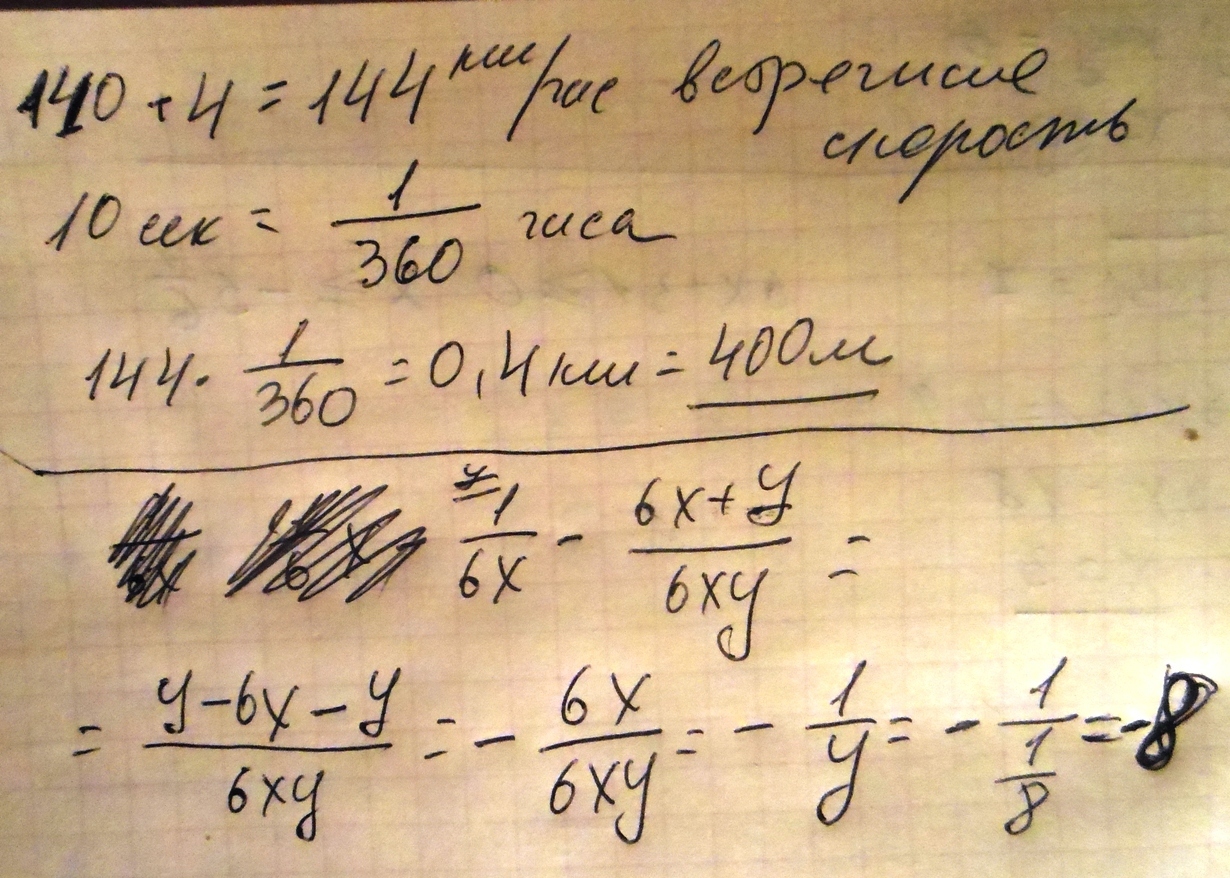 140 + 4 = 144 км/час встречные
скорость
10 сек = 1/360 часа
144 · 1/360 = 0,4 км = 400 м
1/6x - (6x+y)/6xy =
= (y-6x-y)/6xy = - 6x/6xy = - 1/y = - 1/(1/8) = -8